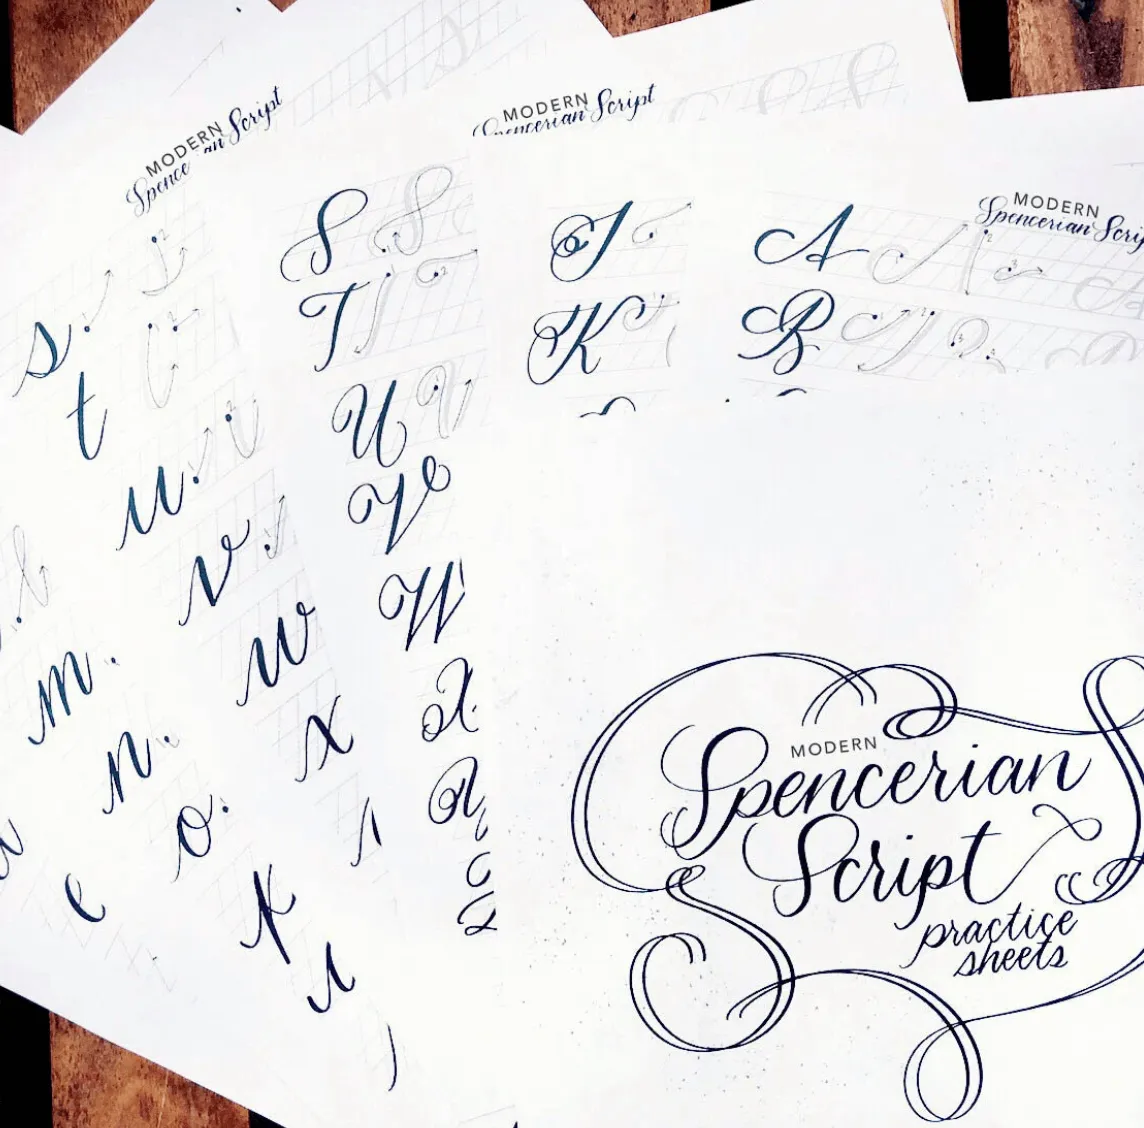 MODERN
Spencerian Script
MODERN
Spencerian Script
MODERN
Spencerian
s
t
u
v
w
x
m
n
o
e
S
T
U
V
W
X
J
K
A
B
MODERN
Spencerian
Script
practice
sheets